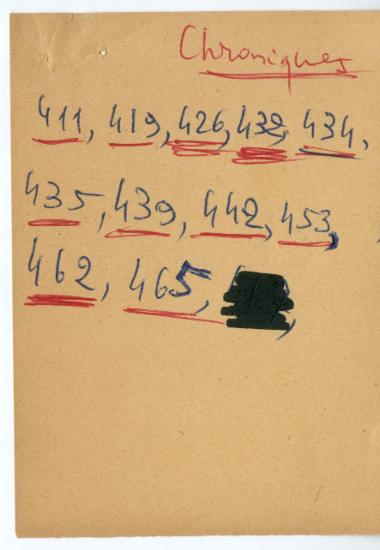 Chroniques
411, 419, 426, 432, 434,
435, 439, 442, 453,
462, 465,